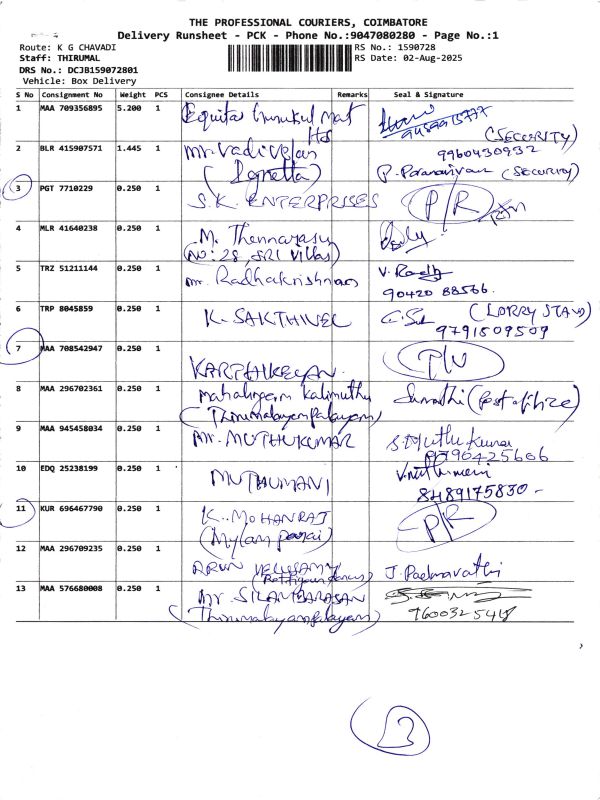 THE PROFESSIONAL COURIERS, COIMBATORE
Delivery Runsheet - PCK - Phone No.:9047080280 - Page No.:1
Route: K G CHAVADI RS No.: 1590728
Staff: THIRUMAL RS Date: 02-Aug-2025
DRS No.: DCJB159072801
Vehicle: Box Delivery
S No Consignment No Weight PCS Consignee Details Remarks Seal & Signature
1 MAA 709356895 5.200 1 Equitas Gurukul Mat
Hs
2 BLR 415907571 1.445 1 Mr. Vadivelan (SECURITY)
9960430932
(SECURITY)
3 PGT 7710229 0.250 1 S.K. ENTERPRISES P/R
4 MLR 41640238 0.250 1 M. Thennarasu
(NO: 28, SRI Villas)
5 TRZ 51211144 0.250 1 Mr. Radhakrishnan V. Radh
90420 88566.
6 TRP 8045859 0.250 1 K. SAKTHIVEL (LORRY STAND)
9791509509
7 MAA 708542947 0.250 1 KARTHIKEYAN
8 MAA 296702361 0.250 1 Mahalingam Kalimuthu Sumathi
(Thirumalayampalayam)
9 MAA 945458034 0.250 1 Mr. MUTHUKUMAR S. Muthu Kumar
10 EDQ 25238199 0.250 1 MUTHUMANI
8489175830 -
11 KUR 696467790 0.250 1 K. MOHANRAJ P/R
(Mylam
12 MAA 296709235 0.250 1 ARUN VELUSAMY J. Padmavathi
13 MAA 576680008 0.250 1 Mr. SILAMBARASAN
(Thirumalayampalayam)
13